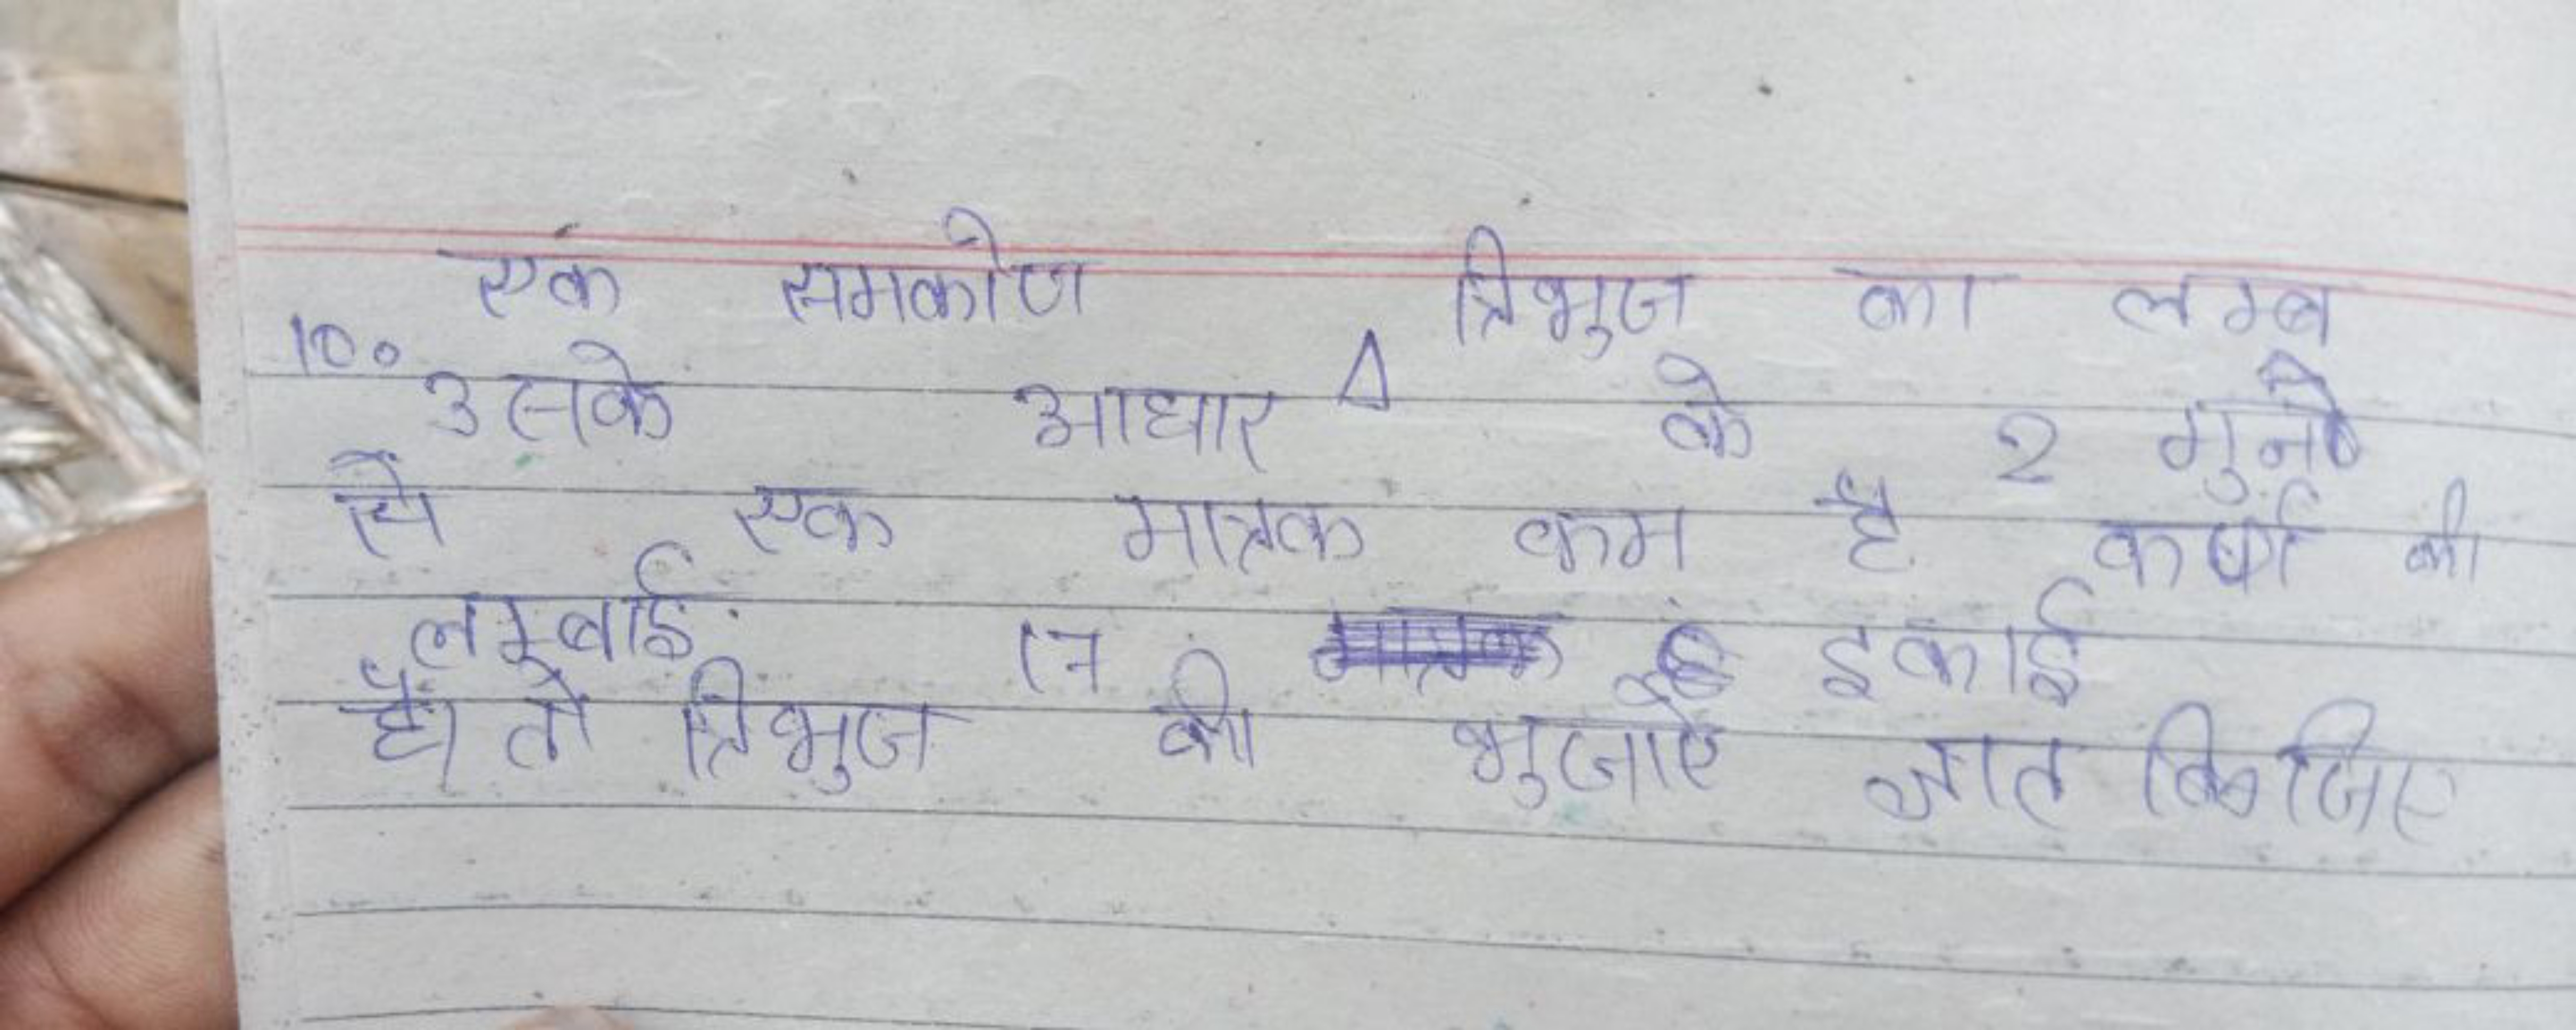 एक समकोण त्रिभुज का लम्ब
10. उसके आधार Δ के 2 गुने
से एक मात्रक कम है कर्ण की
लम्बाई 17 इकाई
है। तो त्रिभुज की भुजाऐ ज्ञात किजिए